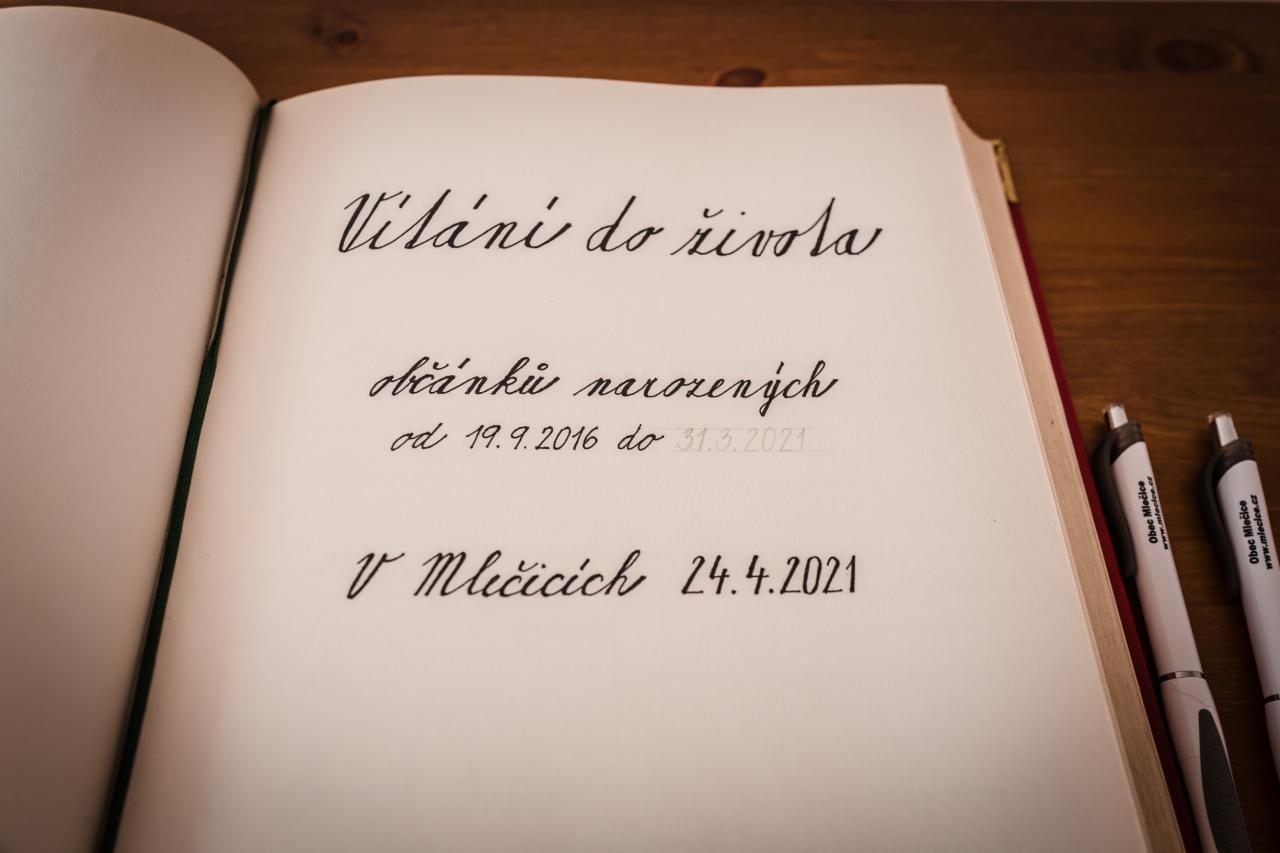 Vítání do života
občánků narozených
od 19.9.2016 do 31.3.2021
V Mlečicích 24.4.2021
Obec Mlečice
www.mlecice.cz
Obec Mlečice
www.mlecice.cz